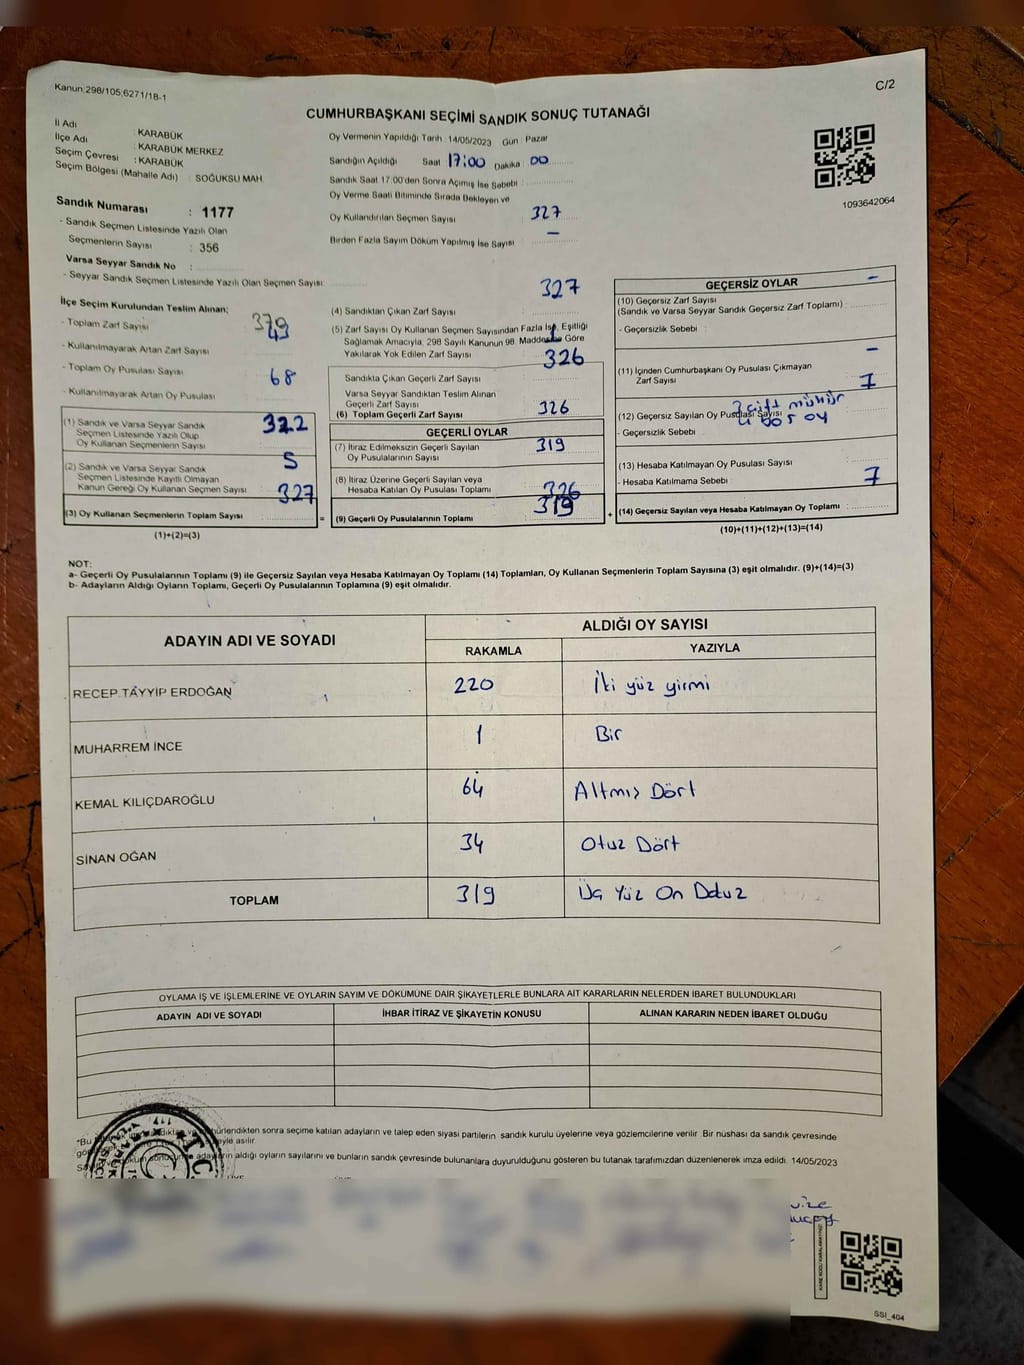 Kanun;298/105;6271/18-1
C/2
CUMHURBAŞKANI SEÇİMİ SANDIK SONUÇ TUTANAĞI
İl Adı : KARABÜK
İlçe Adı : KARABÜK MERKEZ
Seçim Çevresi : KARABÜK
Seçim Bölgesi (Mahalle Adı) : SOĞUKSU MAH.
Sandık Numarası : 1177
- Sandık Seçmen Listesinde Yazılı Olan
Seçmenlerin Sayısı : 356
Varsa Seyyar Sandık No :
- Seyyar Sandık Seçmen Listesinde Yazılı Olan Seçmen Sayısı:
Oy Vermenin Yapıldığı Tarih 14/05/2023 Gün Pazar
Sandığın Açıldığı Saat 17:00 Dakika 00
Sandık Saat 17.00'den Sonra Açılmış İse Sebebi :
Oy Verme Saati Bitiminde Sırada Bekleyen ve
Oy Kullandırılan Seçmen Sayısı 327
Birden Fazla Sayım Döküm Yapılmış İse Sayısı : -
1093642064
İlçe Seçim Kurulundan Teslim Alınan;
- Toplam Zarf Sayısı
- Kullanılmayarak Artan Zarf Sayısı 43
- Toplam Oy Pusulası Sayısı
- Kullanılmayarak Artan Oy Pusulası 68
(1) Sandık ve Varsa Seyyar Sandık
Seçmen Listesinde Yazılı Olup
Oy Kullanan Seçmenlerin Sayısı 322
(2) Sandık ve Varsa Seyyar Sandık
Seçmen Listesinde Kayıtlı Olmayan
Kanun Gereği Oy Kullanan Seçmen Sayısı 5
(3) Oy Kullanan Seçmenlerin Toplam Sayısı 327
(1)+(2)=(3)
(4) Sandıktan Çıkan Zarf Sayısı 327
(5) Zarf Sayısı Oy Kullanan Seçmen Sayısından Fazla İse, Eşitliği
Sağlamak Amacıyla, 298 Sayılı Kanunun 98. Maddesine Göre
Yakılarak Yok Edilen Zarf Sayısı 1
Sandıkta Çıkan Geçerli Zarf Sayısı 326
Varsa Seyyar Sandıktan Teslim Alınan
Geçerli Zarf Sayısı
(6) Toplam Geçerli Zarf Sayısı 326
GEÇERLİ OYLAR
(7) İtiraz Edilmeksizin Geçerli Sayılan
Oy Pusulalarının Sayısı 319
(8) İtiraz Üzerine Geçerli Sayılan veya
Hesaba Katılan Oy Pusulası Toplamı 326
= (9) Geçerli Oy Pusulalarının Toplamı 319 +
GEÇERSİZ OYLAR
(10) Geçersiz Zarf Sayısı -
(Sandık ve Varsa Seyyar Sandık Geçersiz Zarf Toplamı) :
- Geçersizlik Sebebi :
(11) İçinden Cumhurbaşkanı Oy Pusulası Çıkmayan
Zarf Sayısı -
(12) Geçersiz Sayılan Oy Pusulası Sayısı 7
- Geçersizlik Sebebi : çift mühür
boş oy
(13) Hesaba Katılmayan Oy Pusulası Sayısı
- Hesaba Katılmama Sebebi :
(14) Geçersiz Sayılan veya Hesaba Katılmayan Oy Toplamı : 7
(10)+(11)+(12)+(13)=(14)
NOT:
a- Geçerli Oy Pusulalarının Toplamı (9) ile Geçersiz Sayılan veya Hesaba Katılmayan Oy Toplamı (14) Toplamları, Oy Kullanan Seçmenlerin Toplam Sayısına (3) eşit olmalıdır. (9)+(14)=(3)
b- Adayların Aldığı Oyların Toplamı, Geçerli Oy Pusulalarının Toplamına (9) eşit olmalıdır.
ADAYIN ADI VE SOYADI ALDIĞI OY SAYISI
RAKAMLA YAZIYLA
RECEP TAYYİP ERDOĞAN 220 İki yüz yirmi
MUHARREM İNCE 1 Bir
KEMAL KILIÇDAROĞLU 64 Altmış Dört
SİNAN OĞAN 34 Otuz Dört
TOPLAM 319 Üç Yüz On Dokuz
OYLAMA İŞ VE İŞLEMLERİNE VE OYLARIN SAYIM VE DÖKÜMÜNE DAİR ŞİKAYETLERLE BUNLARA AİT KARARLARIN NELERDEN İBARET BULUNDUKLARI
ADAYIN ADI VE SOYADI İHBAR İTİRAZ VE ŞİKAYETİN KONUSU ALINAN KARARIN NEDEN İBARET OLDUĞU
sonra seçime katılan adayların ve talep eden siyasi partilerin sandık kurulu üyelerine veya gözlemcilerine verilir. Bir nüshası da sandık çevresinde
asılır.
aldığı oyların sayılarını ve bunların sandık çevresinde bulunanlara duyurulduğunu gösteren bu tutanak tarafımızdan düzenlenerek imza edildi. 14/05/2023
SSI_404